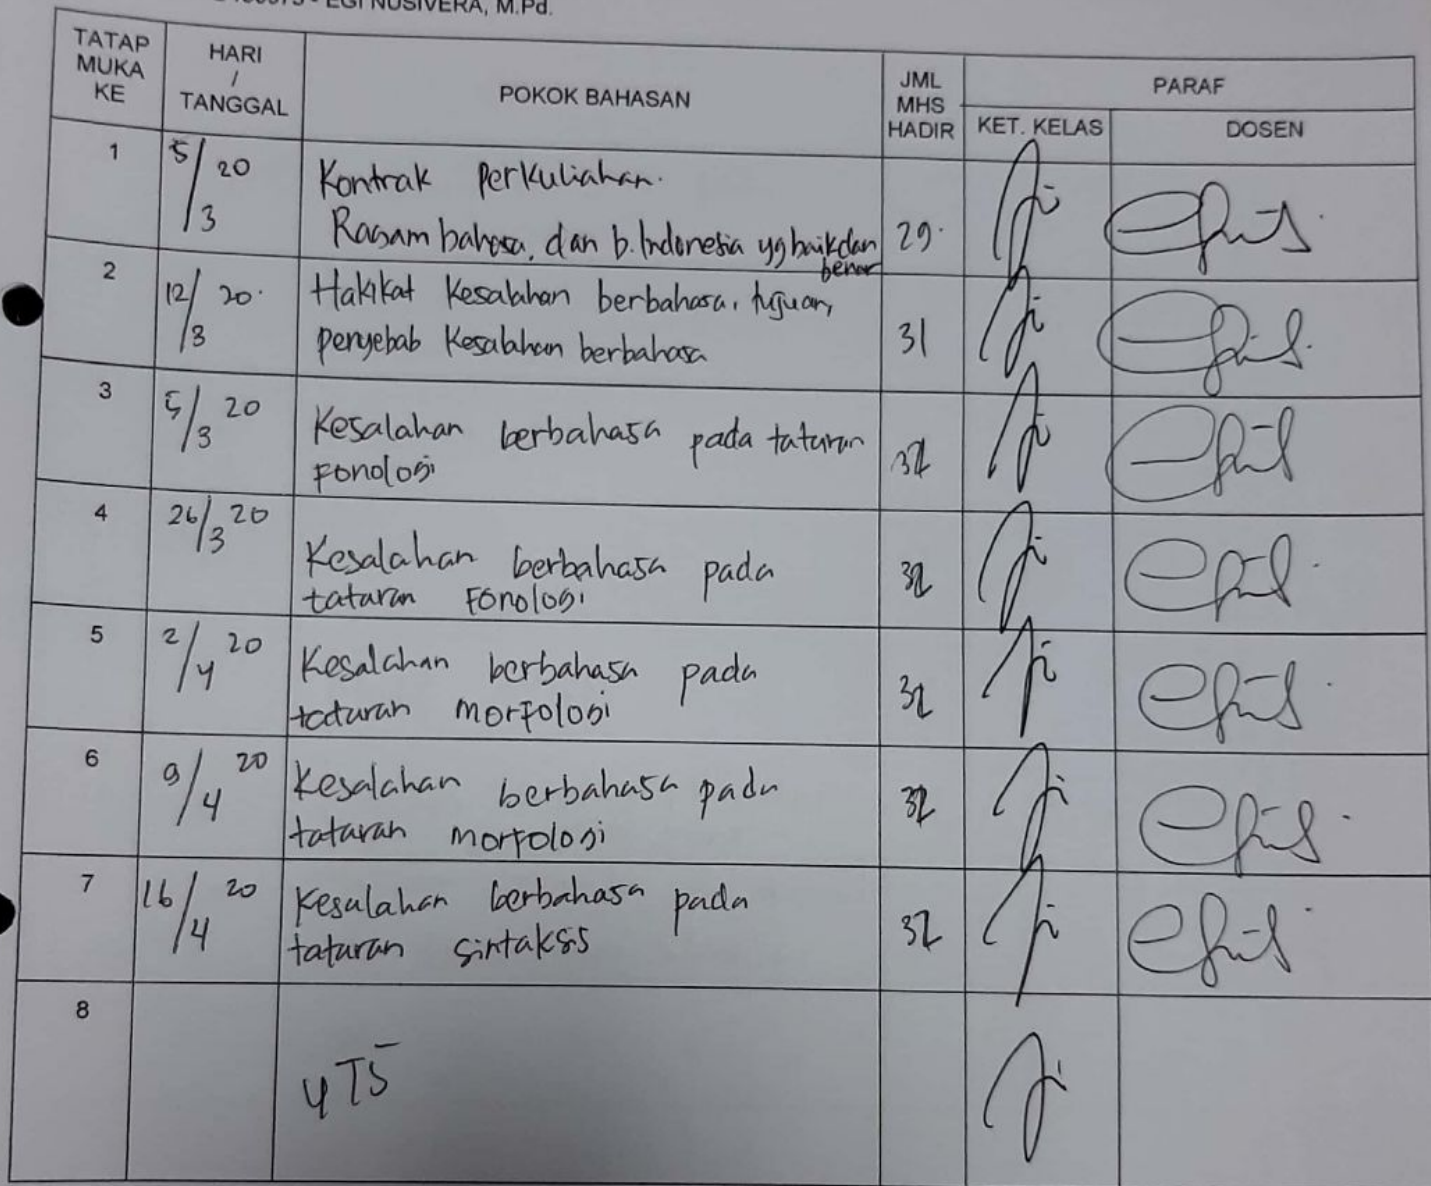 EGI NUSIVERA, M.Pd.
TATAP MUKA KE
HARI / TANGGAL
POKOK BAHASAN
JML MHS HADIR
PARAF
KET. KELAS
DOSEN
1
5/3 20
Kontrak perkuliahan.
Ragam bahasa, dan b. Indonesia yg baik dan
benar
29
2
12/3 20
Hakikat kesalahan berbahasa, tujuan,
penyebab kesalahan berbahasa
31
3
5/3 20
Kesalahan berbahasa pada tataran
Fonologi
32
4
26/3 20
Kesalahan berbahasa pada
tataran Fonologi
32
5
2/4 20
Kesalahan berbahasa pada
tataran morfologi
32
6
9/4 20
Kesalahan berbahasa pada
tataran morfologi
32
7
16/4 20
Kesalahan berbahasa pada
tataran sintaksis
32
8
UTS